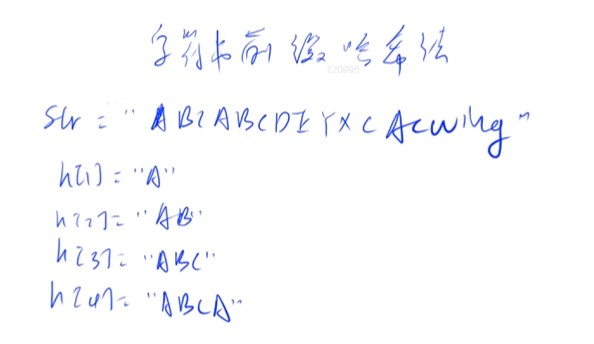 字符串前缀哈希法
120995
str = "ABCABCDEYXCAcwing"
h[1] = "A"
h[2] = "AB"
h[3] = "ABC"
h[4] = "ABCA"